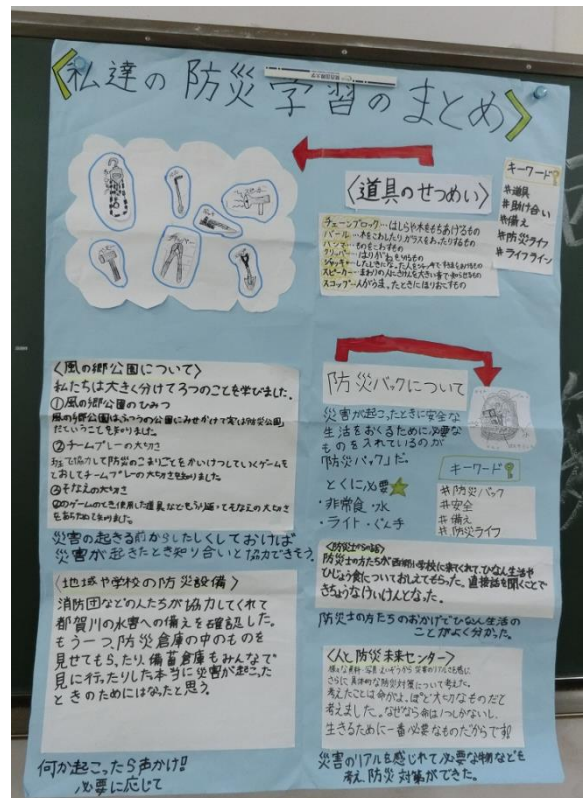 〈私達の防災学習のまとめ〉
キーワード
#道具
#助け合い
#備え
#防災ライフ
#ライフライン
〈道具のせつめい〉
チェーンブロック…はしらや木をもちあげるもの
バール…木をこわしたり、ガラスをわったりするもの
ハンマ…ものをこわすもの
クリッパー…はりがねをきるもの
ジャッキ…
スピーカー…まわりの人にきけんを大きい音で知らせるもの
スコップ…人がうまったときにほりおこすもの
〈風の郷公園について〉
私たちは大きく分けて3つのことを学びました。
①風の郷公園のひみつ
風の郷公園はふつうの公園にみせかけて実は防災公園
だということを知りました。
②チームプレーの大切さ
協力して防災のこまりごとをかいけつしていくゲームを
とおしてチームプレーの大切さを知りました。
③そなえの大切さ
②のゲームのとき使用した道具などもふり返ってそなえの大切さ
をあらためて知りました。
災害の起きる前からしたしくしておけば
災害が起きたとき知り合いと協力できそう。
〈地域や学校の防災設備〉
消防団などの人たちが協力してくれて
都賀川の水害への備えを確認した。
もう一つ、防災倉庫の中のものを
見せてもらったり、備蓄倉庫もみんなで
見に行ったりした本当に災害が起こった
ときのためにはなったと思う。
何か起こったら声かけ!!
必要に応じて
防災バックについて
災害が起こったときに安全な
生活をおくるために必要な
ものを入れているのが
「防災バック」だ。
とくに必要
・非常食・水
・ライト・ぐん手
キーワード
#防災バック
#安全
#備え
#防災ライフ
〈防災士からの話〉
防災士の方たちが西郷小学校に来てくれて、ひなん生活や
ひじょう食についておしえてもらった。直接話を聞くことで
きちょうなけいけんとなった。
防災士の方たちのおかげでひなん生活の
ことがよく分かった。
〈人と防災未来センター〉
さらに具体的な防災対策について考えた。
考えたことは命がよっぽど大切なものだと
考えました。なぜなら命は1つしかないし、
生きるために一番必要なものだからです!
災害のリアルを感じれて必要な物などを
考え、防災対策ができた。